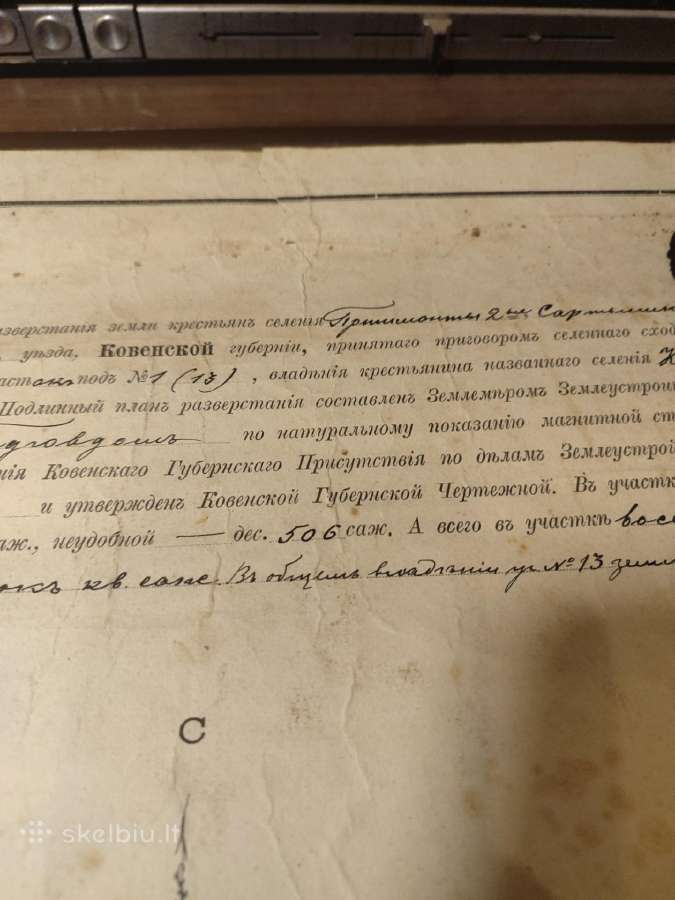 разверстанія земли крестьянъ селенія 2
уѣзда, Ковенской губерніи, принятаго приговоромъ селеннаго сход
участокъ подъ №1 (13), владѣнія крестьянина названнаго селенія
Подлинный планъ разверстанія составленъ Землемѣромъ Землеустрои
по натуральному показанію магнитной ст
нія Ковенскаго Губернскаго Присутствія по дѣламъ Землеустрой
и утвержденъ Ковенской Губернской Чертежной. Въ участк
аж., неудобной — дес. 506 саж. А всего въ участкѣ восе
окъ кв. саж. Въ общемъ владѣніи уч №13 земл
С
skelbiu.lt